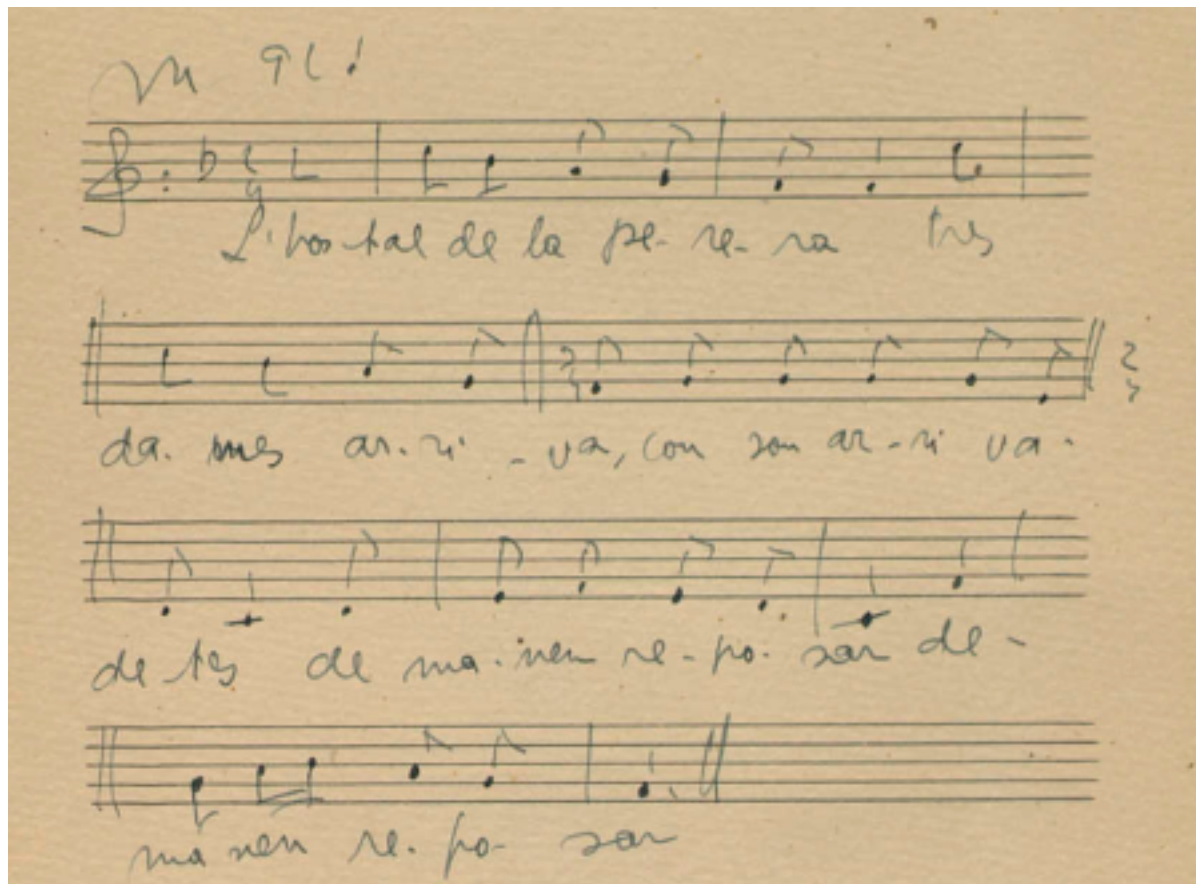 L'hos-tal de la pe-re-ra tres
da-mes ar-ri-va, con son ar-ri va-
de tes de ma-nen re-po-sar de-
ma nen re-po-sar